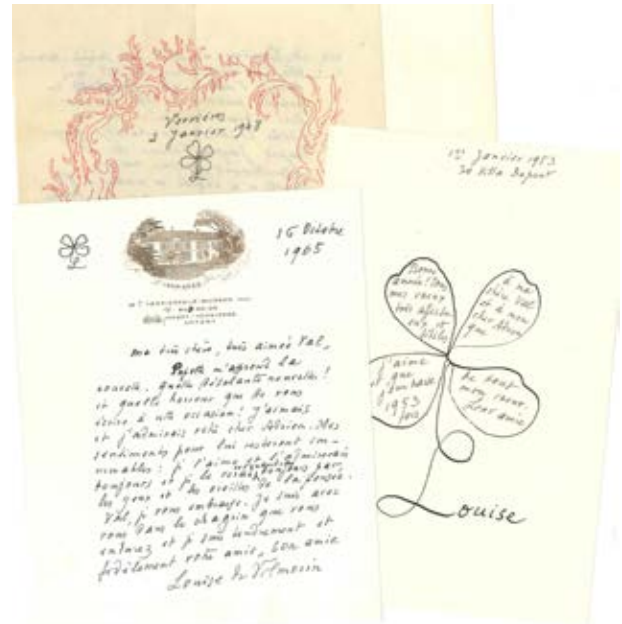 Verrières
2 Janvier 1948
1er Janvier 1953
30 Villa Dupont
16 Octobre
1965
ma très chère, très aimée Val,
m'apprend la
nouvelle. Quelle désolante nouvelle !
et quelle horreur que de vous
écrire à cette occasion ! J'aimais
et j'admirais votre cher Adrien. Mes
sentiments pour lui resteront im-
muables : je l'aime et l'admirerai
toujours et je le toujours par
les yeux et les oreilles de la pensée.
Val, je vous embrasse. Je suis avec
vous dans le chagrin que vous
endurez et je suis tendrement et
fidèlement votre amie, bon amie
Louise de Vilmorin
Bonne
année ! Tous
mes vœux
très affectu
eux et
fidèles
à ma
chère Val
et à mon
cher Adrien
que
j'aime
et que
j'embrasse
1953
fois
de tout
mon cœur.
Leur amie
Louise